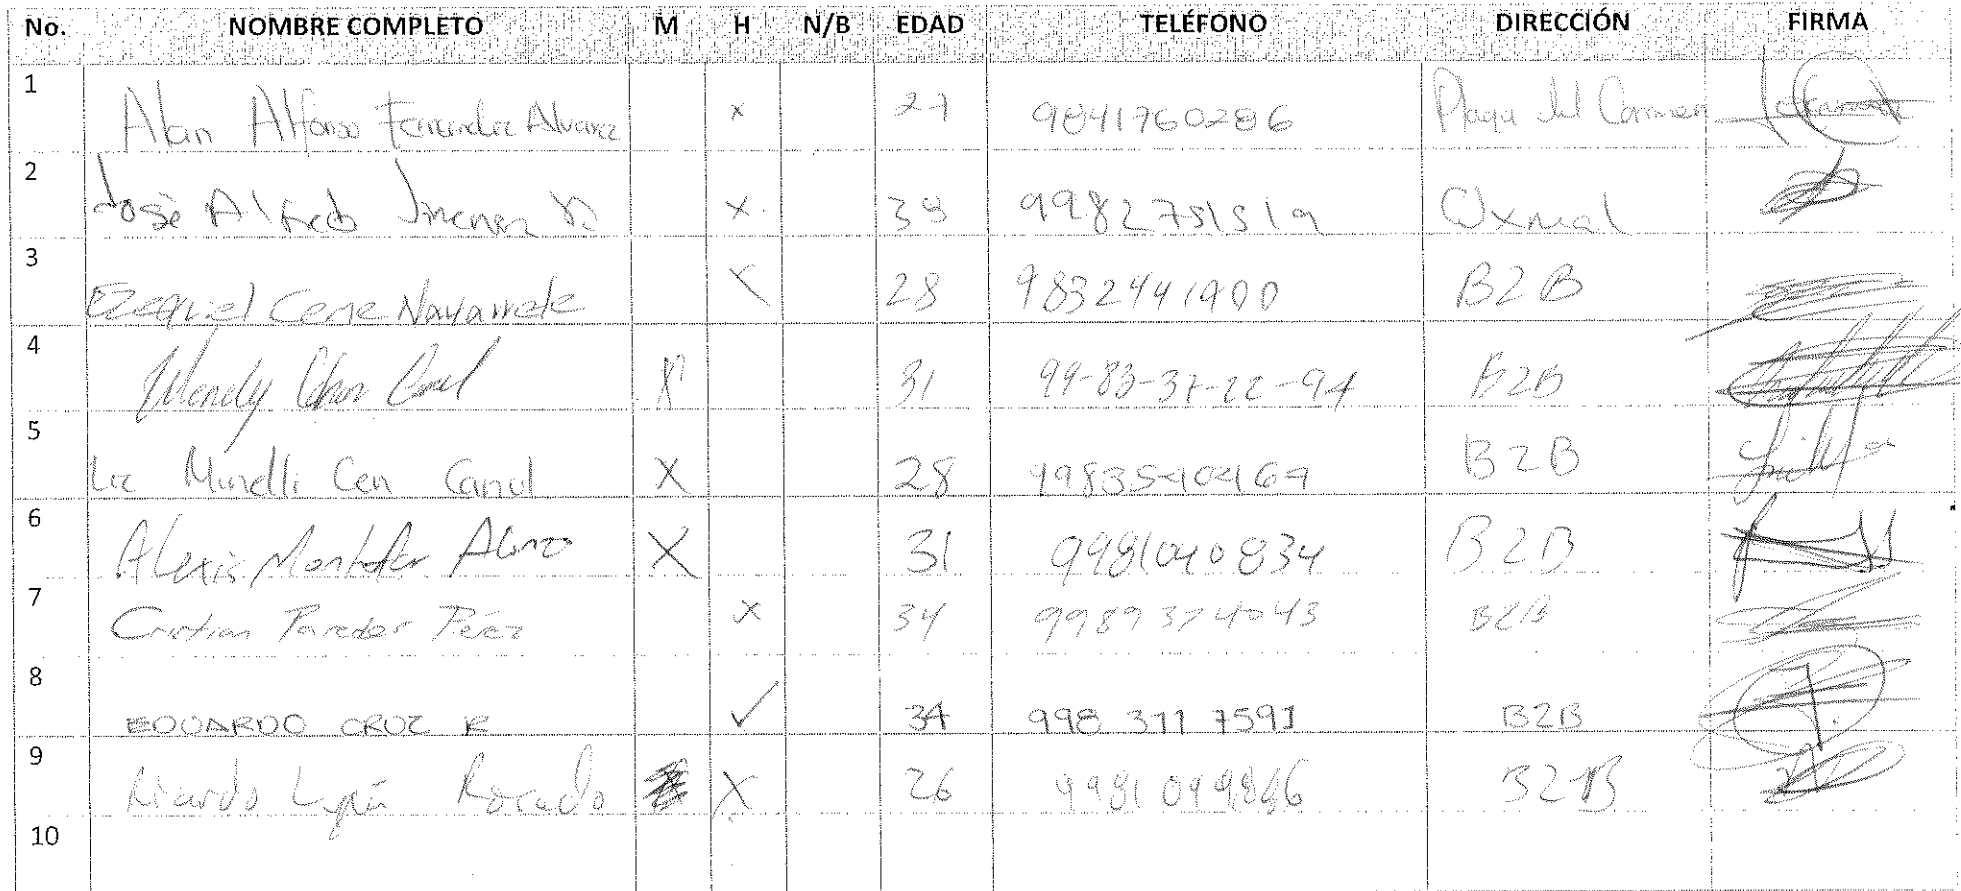 No. NOMBRE COMPLETO M H N/B EDAD TELÉFONO DIRECCIÓN FIRMA
1 Alan Alfonso Fernandez Alvarez x 27 9841760286 Playa del Carmen
2 José Alfredo Jimenez x 38 9982751519 Uxmal
3 Ezequiel Cene Navarrete X 28 9832441900 B2B
4 Wendy X 31 99-83-37-22-94 B2B
5 Liz Minelli Cen Canul X 28 B2B
6 Alexis X 31 9981040834 B2B
7 Cristian Paredes Pérez x 34 9989374043 B2B
8 EDUARDO CRUZ R ✓ 34 998 311 7591 B2B
9 Ricardo Rosado X 26 B2B
10